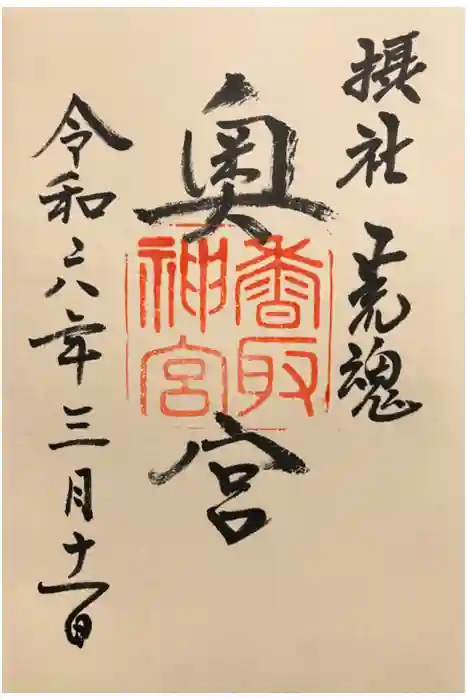 摂社 荒魂
奥宮
香取神宮
令和六年三月十一日